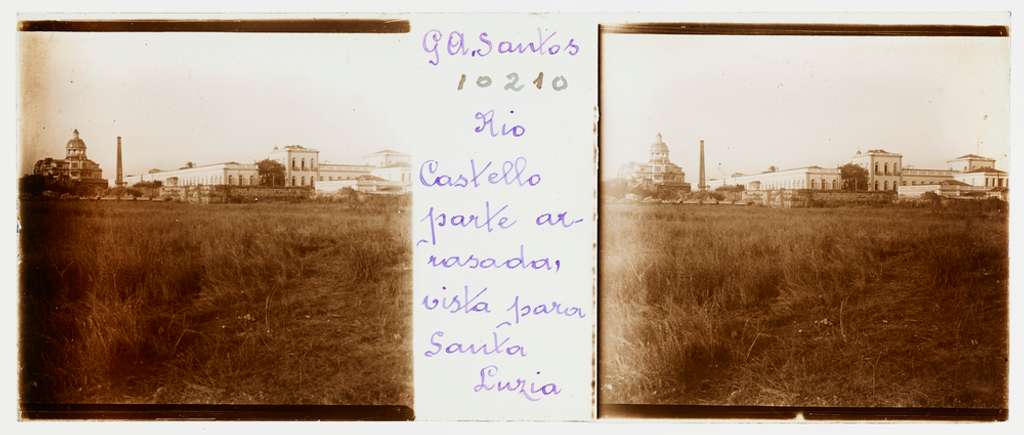 G A. Santos
10210
Rio
Castello
parte ar-
rasada,
vista para
Santa
Luzia